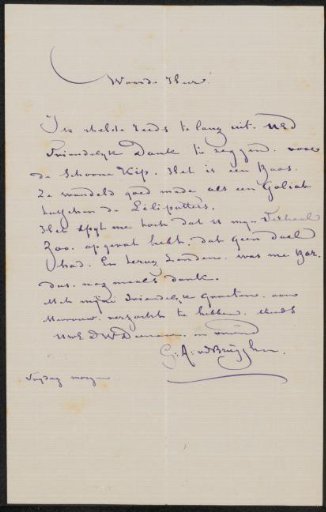 Waarde Heer
Ik stelde reeds te lang uit. UEd
Vriendelyk Dank te zeggen. voor
de Schoone Kip. Het is een Haas.
Ze wandeld goed mede als een Goliath
tusschen de Liliputters.
Het spyt me toch dat U my
Zoo. opgevat hebt. dat geen doel
had. En terug Zenden. was me
das. nogmaals dank.
Met myne Vriendelyke Groetens. aan
Mevrouw. verzocht te hebben.
UwE DW Dienaar. en vriend
G. A. vdBrugghen.
Vrydag morgen